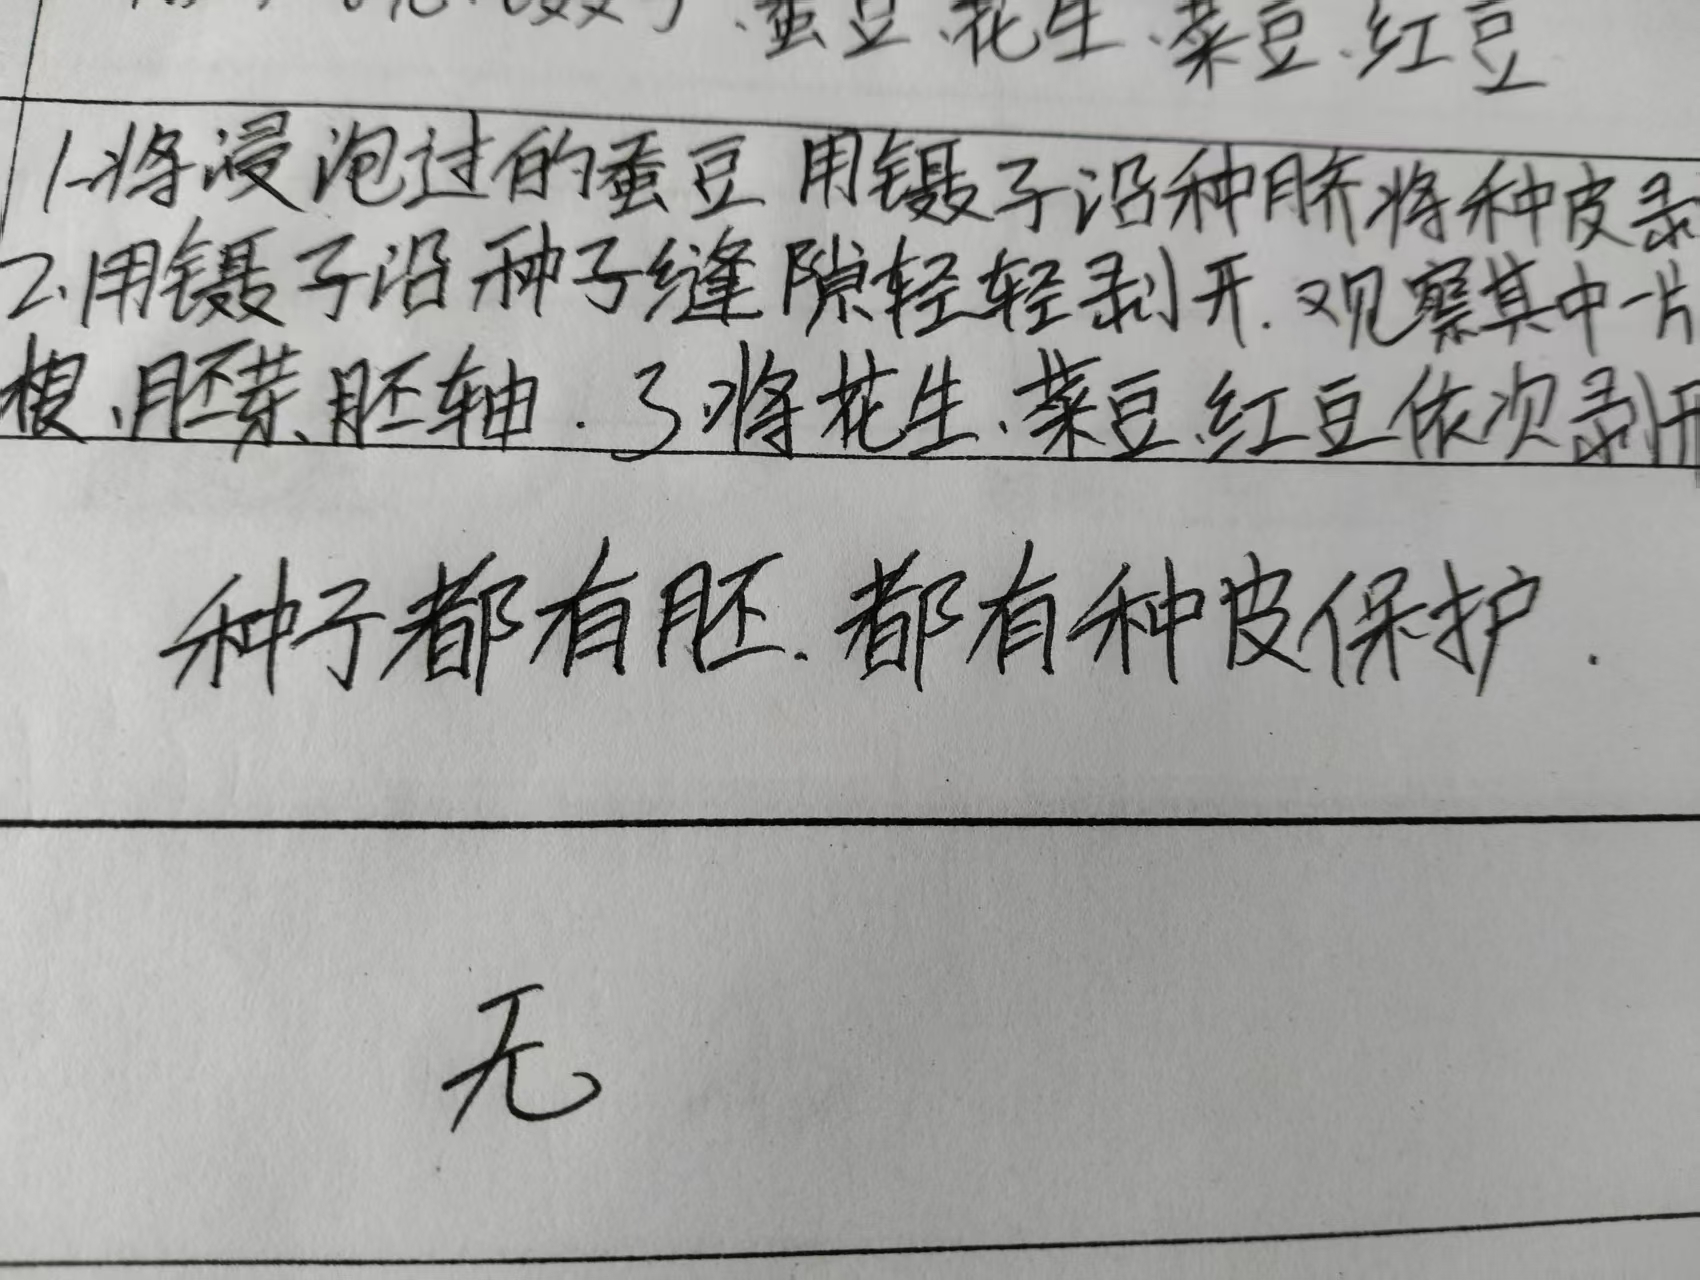 镊子、蚕豆、花生、菜豆、红豆
1.将浸泡过的蚕豆用镊子沿种脐将种皮剥
2.用镊子沿种子缝隙轻轻剥开.观察其中一片
根、胚芽、胚轴.3.将花生、菜豆、红豆依次剥开
种子都有胚.都有种皮保护.
无